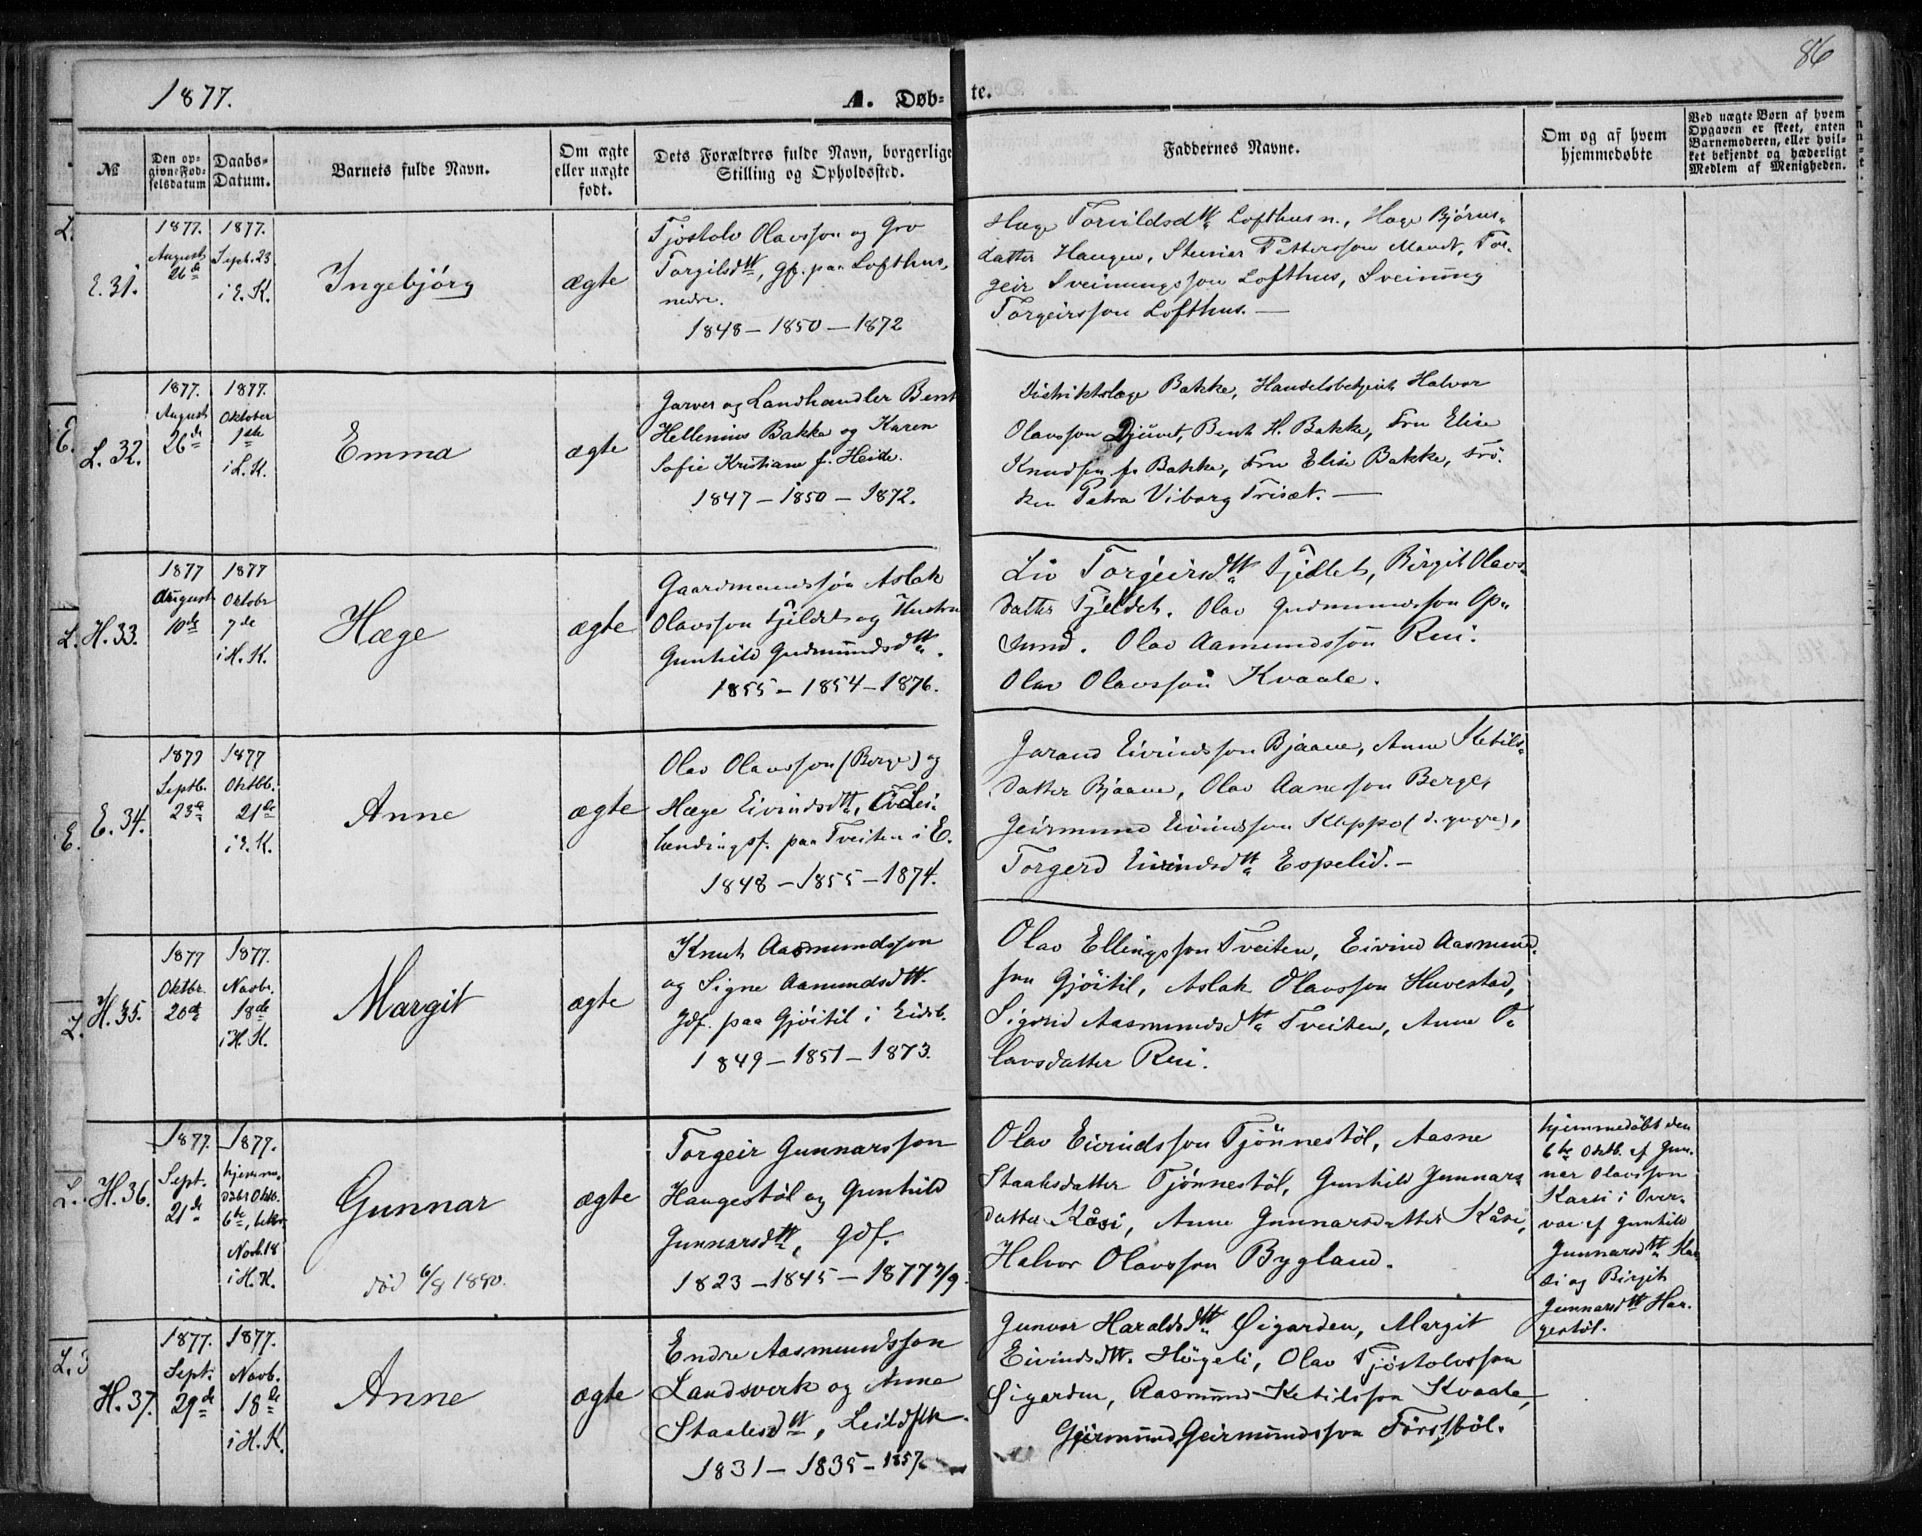 1877.
A. Døb-
te.
86
№
Den op-
givne Fød-
selsdatum
Daabs-
Datum.
Barnets fulde Navn.
Om ægte
eller uægte
født.
Dets Forældres fulde Navn, borgerlige
Stilling og Opholdssted.
Faddernes Navne.
Om og af hvem
hjemmedøbte
Ved uægte Børn af hvem
Opgaven er skeet, enten
Barnemoderen, eller hvil-
ket bekjendt og hæderligt
Medlem af Menigheden.
E. 31.
1877.
August
26de
1877.
Sept. 23
i E. K.
Ingebjörg
ægte
Tjostolv Olavsson og Gro
Torgilsdtt, gf. paa Lofthus,
nedre.
1848 – 1850 – 1872
Hæge Torvildsdtt Lofthus n., Hæge Bjørns-
datter Haugen, Steinar Pettersson Mandt, Tor-
geir Sveinungsson Lofthus, Sveinung
Torgeirsson Lofthus. —
L. 32.
1877.
August
26de
1877.
Oktober
7de
i L. K.
Emma
ægte
Garver og Landhandler Bent
Hellenius Bakka og Karen
Sofie Kristiane f. Heide.
1847 – 1850 – 1872.
Distriktslæge Bakke, Handelsbetjent Halvor
Olavsson Djuvet, Bent H. Bakke, Fru Elise
Knudsen f. Bakke, Fru Elise Bakke, Frö-
ken Petra Viborg Trisæt. —
H. 33.
1877
August
10de
1877
Oktobr
7de
i H. K.
Hæge
ægte
Gaardmandssøn Aslak
Olavsson Fjeldet og Hustru
Gunhild Gudmundsdtt.
1855 – 1854 – 1876.
Liv Torgeirsdtt Fjeldet, Birgit Olavs-
datter Fjeldet. Olav Gudmundsson Op-
sund. Olav Aamundsson Rui.
Olav Olavsson Kvaale.
E. 34.
1877
Septb.
23de
1877
Oktbb.
21de
i E. K.
Anne
ægte
Olav Olavsson (Berge) og
Hæge Eivindsdtt, Lei-
lændingsf. paa Tveiten i E.
1848 – 1855 – 1874.
Jarand Eivindsson Bjaaen, Anne Ketils-
datter Bjaaen, Olav Aanesson Berge,
Geirmund Eivindsson Kleppo (d. yngre),
Torgerd Eivindsdtt Espelid. –
H. 35.
1877
Oktbr.
20de
1877.
Novbr.
18de
i H. K.
Margit
ægte
Knut Aasmundsson
og Signe Aamundsdtt.
Gdf. paa Gjöitil i Eidsb.
1849 – 1851 – 1873.
Olav Ellingsson Tveiten, Eivind Aasmund-
son Gjöitil, Aslak Olavsson Huvestad,
Sigrid Aasmundsdtt Tveiten, Anne O-
lavsdatter Rui.
H. 36.
1877.
Sept.
21de
1877.
hjemme-
döbt Oktb.
6te, bekr.
Novb. 18
i H. K.
Gunnar
död 6/8 1890.
ægte
Torgeir Gunnarsson
Haugestöl og Gunhild
Gunnarsdtt, gdf.
1823 – 1845 – 1877 7/9.
Olav Eivindsson Tjönnestöl, Aasne
Staalesdatter Tjönnestöl, Gunhild Gunnars-
datter Kåsi, Anne Gunnarsdatter Kåsi,
Halvor Olavsson Bygland.
hjemmedöbt den
6te Oktb. af Gun-
nar Olavsson
Kaasi i Over-
vær af Gunhild
Gunnarsdtt Kaa-
si og Birgit
Gunnarsdtt Hau-
gestöl.
H. 37.
1877.
Sept.
29de
1877.
Novb.
18de
i H. K.
Anne
ægte
Endre Aasmundsson
Landsverk og Anne
Staalesdtt, Leildflk.
1831 – 1835 – 1857
Gunvor Haraldsdtt Øigarden, Margit
Eivindsdtt. Högeli, Olav Tjöstolvsson
Øigarden, Aasmund Ketilsson Kvaale,
Geirmund Geirmundsson Förstböl.